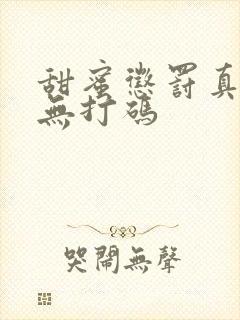 甜蜜懲罰真
無打碼
哭鬧無聲